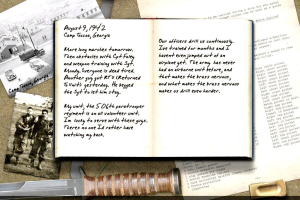 August 9, 1942
Camp Toccoa, Georgia
More long marches tomorrow.
Then obstacles with Cpt Foley
and weapon training with Sgt.
Moody. Everyone is dead tired.
Another guy got RTU (Returned
To Unit) yesterday. He begged
the Sgt to let him stay.
My unit, the 506th parachute
regiment is an all volunteer unit.
I'm lucky to serve with these guys.
There's no one I'd rather have
watching my back.
Our officers drill us continually.
I've trained for months and I
haven't even jumped out of an
airplane yet. The army has never
had an airborne unit before, and
that makes the brass nervous,
and what makes the brass nervous
makes us drill even harder.